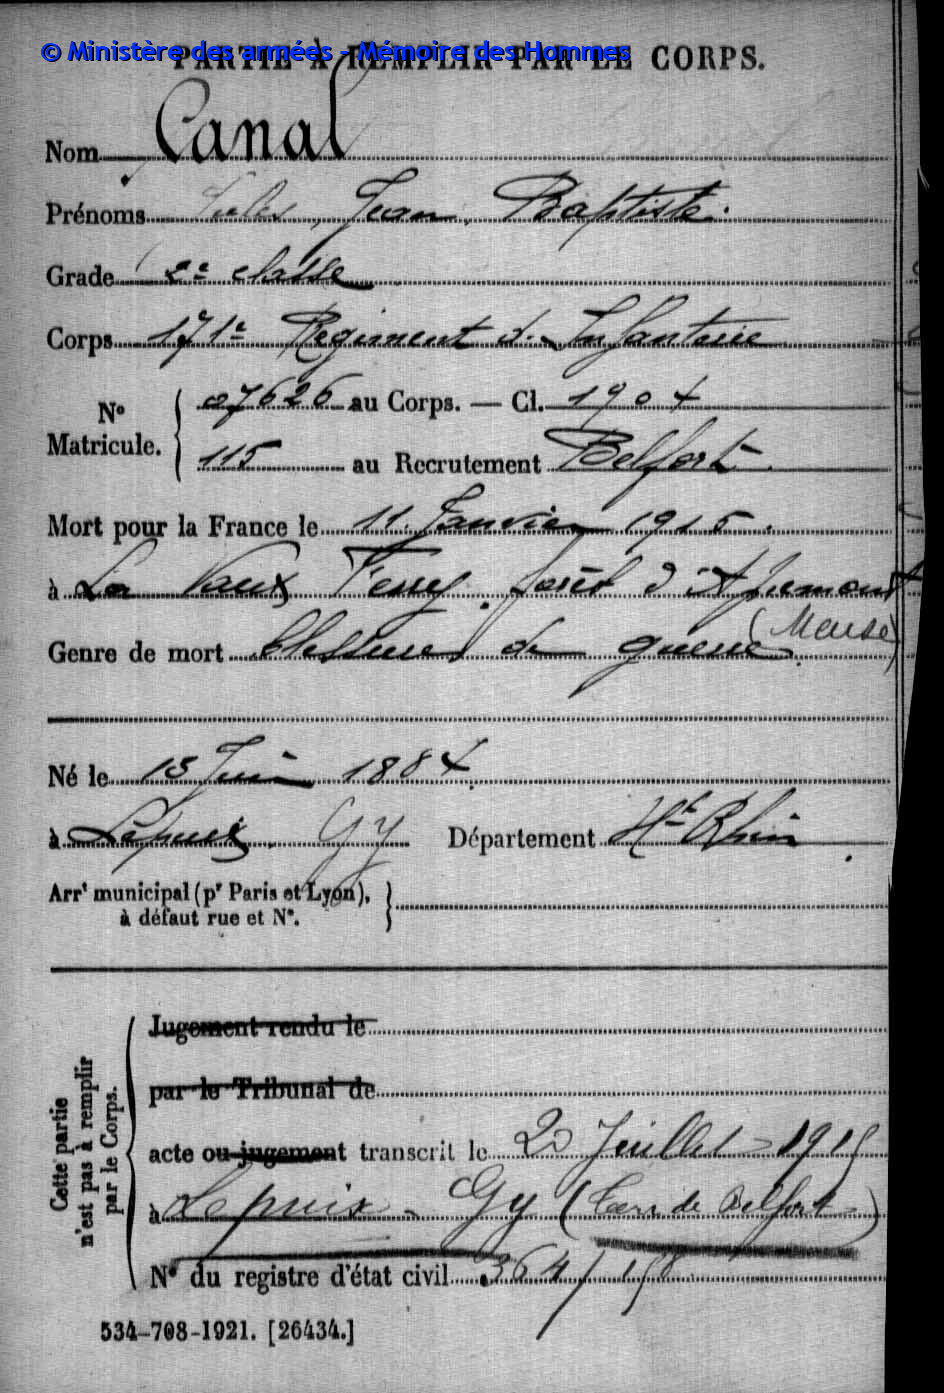 © Ministère des armées - Mémoire des Hommes
PARTIE À REMPLIR PAR LE CORPS.
Nom Canal
Prénoms Jules, Jean, Baptiste.
Grade 2e classe
Corps 171e Régiment d'Infanterie
No Matricule. 07626 au Corps. — Cl. 1904
115 au Recrutement Belfort.
Mort pour la France le 11 Janvier 1915.
à La Vaux Ferry, forêt d'Apremont
(Meuse)
Genre de mort blessures de guerre.
Né le 15 Juin 1884
à Lepuix. Gy Département Ht Rhin.
Arrt municipal (pr Paris et Lyon),
à défaut rue et No.
Cette partie
n'est pas à remplir
par le Corps.
Jugement rendu le
par le Tribunal de
acte ou jugement transcrit le 20 Juillet 1915
à Lepuix - Gy (Terr. de Belfort)
No du registre d'état civil 364/158
534-708-1921. [26434.]